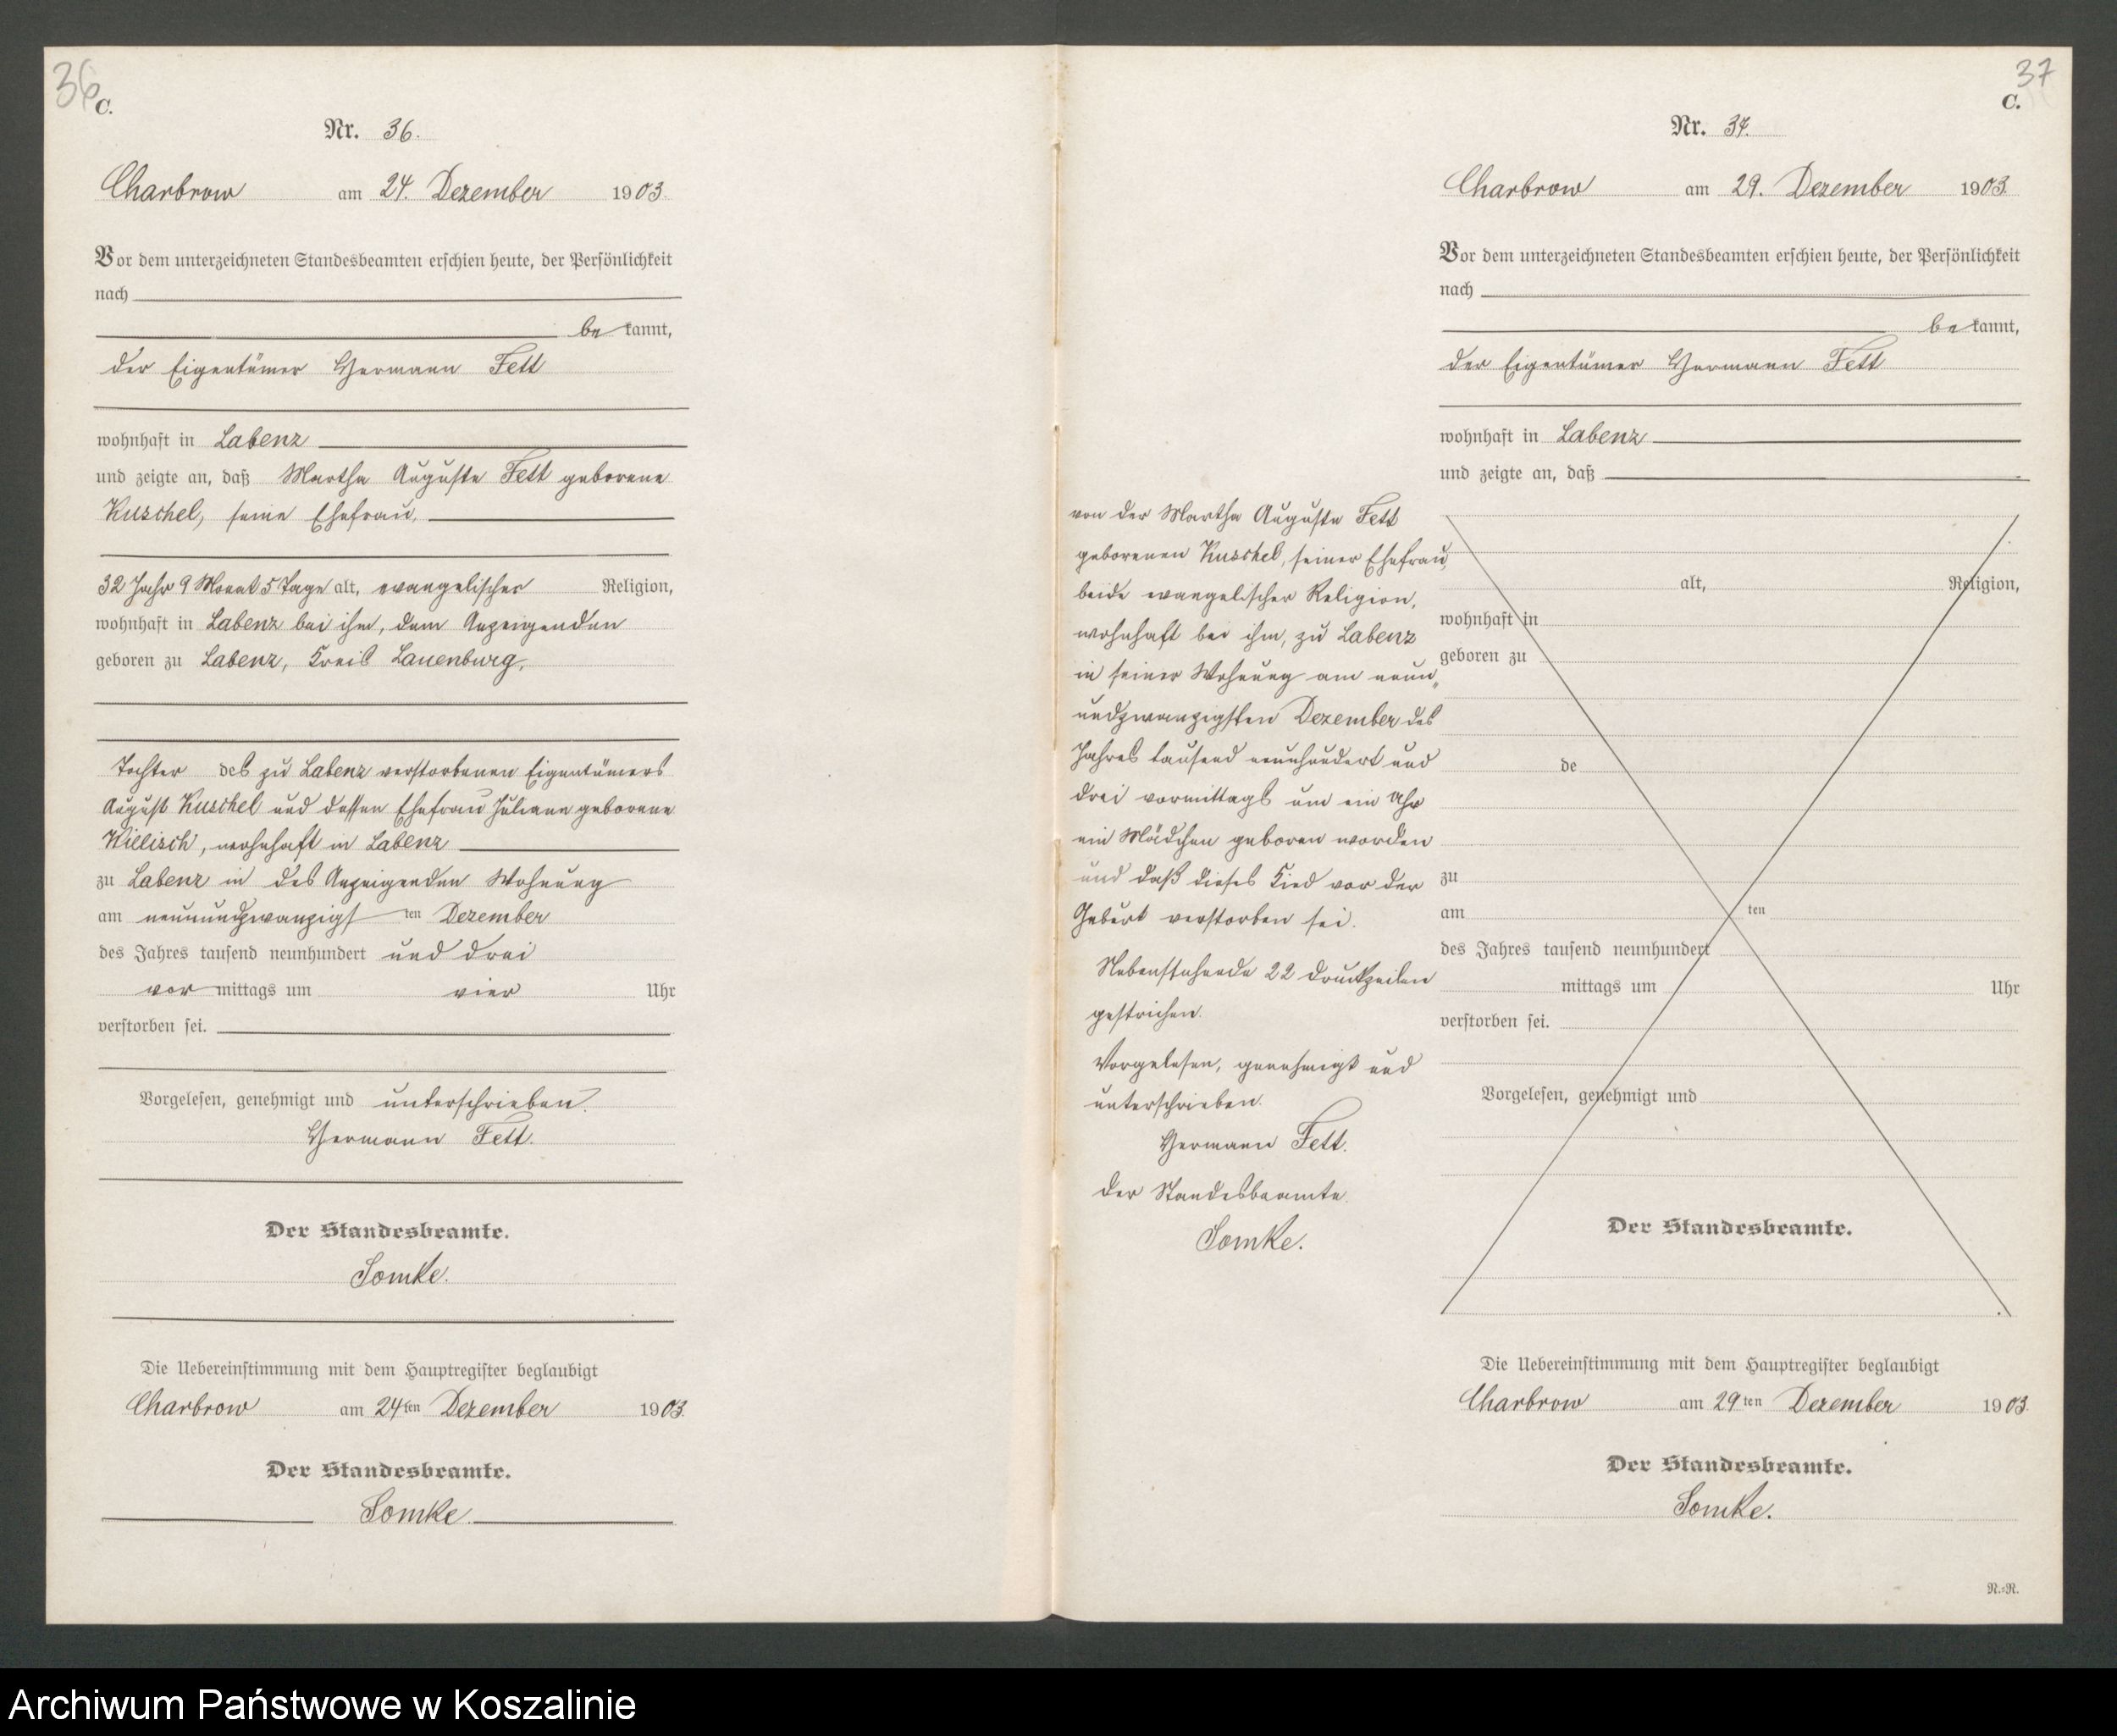 36
C.
Nr. 36.
Charbrow am 24. Dezember 1903.
Vor dem unterzeichneten Standesbeamten erschien heute, der Persönlichkeit
nach
be kannt,
der Eigentümer Hermann Fett
wohnhaft in Labenz
und zeigte an, daß Martha Auguste Fett geborene
Kuschel, seine Ehefrau,
32 Jahr 9 Monat 5 Tage alt, evangelischer Religion,
wohnhaft in Labenz bei ihm, dem Anzeigenden
geboren zu Labenz, Kreis Lauenburg,
Tochter des zu Labenz verstorbenen Eigentümers
August Kuschel und dessen Ehefrau Juliane geborene
Killisch, wohnhaft in Labenz
zu Labenz in des Anzeigenden Wohnung
am neunundzwanzigsten Dezember
des Jahres tausend neunhundert und drei
vor mittags um vier Uhr
verstorben sei.
Vorgelesen, genehmigt und unterschrieben.
Hermann Fett.
Der Standesbeamte.
Somke.
Die Uebereinstimmung mit dem Hauptregister beglaubigt
Charbrow am 24ten Dezember 1903.
Der Standesbeamte.
Somke.
37
C.
Nr. 37.
Charbrow am 29. Dezember 1903.
Vor dem unterzeichneten Standesbeamten erschien heute, der Persönlichkeit
nach
be kannt,
der Eigentümer Hermann Fett
wohnhaft in Labenz
und zeigte an, daß
von der Martha Auguste Fett
geborenen Kuschel, seiner Ehefrau,
beide evangelischer Religion,
wohnhaft bei ihm, zu Labenz
in seiner Wohnung am neun„
undzwanzigsten Dezember des
Jahres tausend neunhundert und
drei vormittags um ein Uhr
ein Mädchen geboren worden
und daß dieses Kind vor der
Geburt verstorben sei.
Nebenstehende 22 Druckzeilen
gestrichen.
Vorgelesen, genehmigt und
unterschrieben.
Hermann Fett.
Der Standesbeamte.
Somke.
alt, Religion,
wohnhaft in
geboren zu
de
zu
am ten
des Jahres tausend neunhundert
mittags um Uhr
verstorben sei.
Vorgelesen, genehmigt und
Der Standesbeamte.
Die Uebereinstimmung mit dem Hauptregister beglaubigt
Charbrow am 29ten Dezember 1903.
Der Standesbeamte.
Somke.
N.=N.
Archiwum Państwowe w Koszalinie